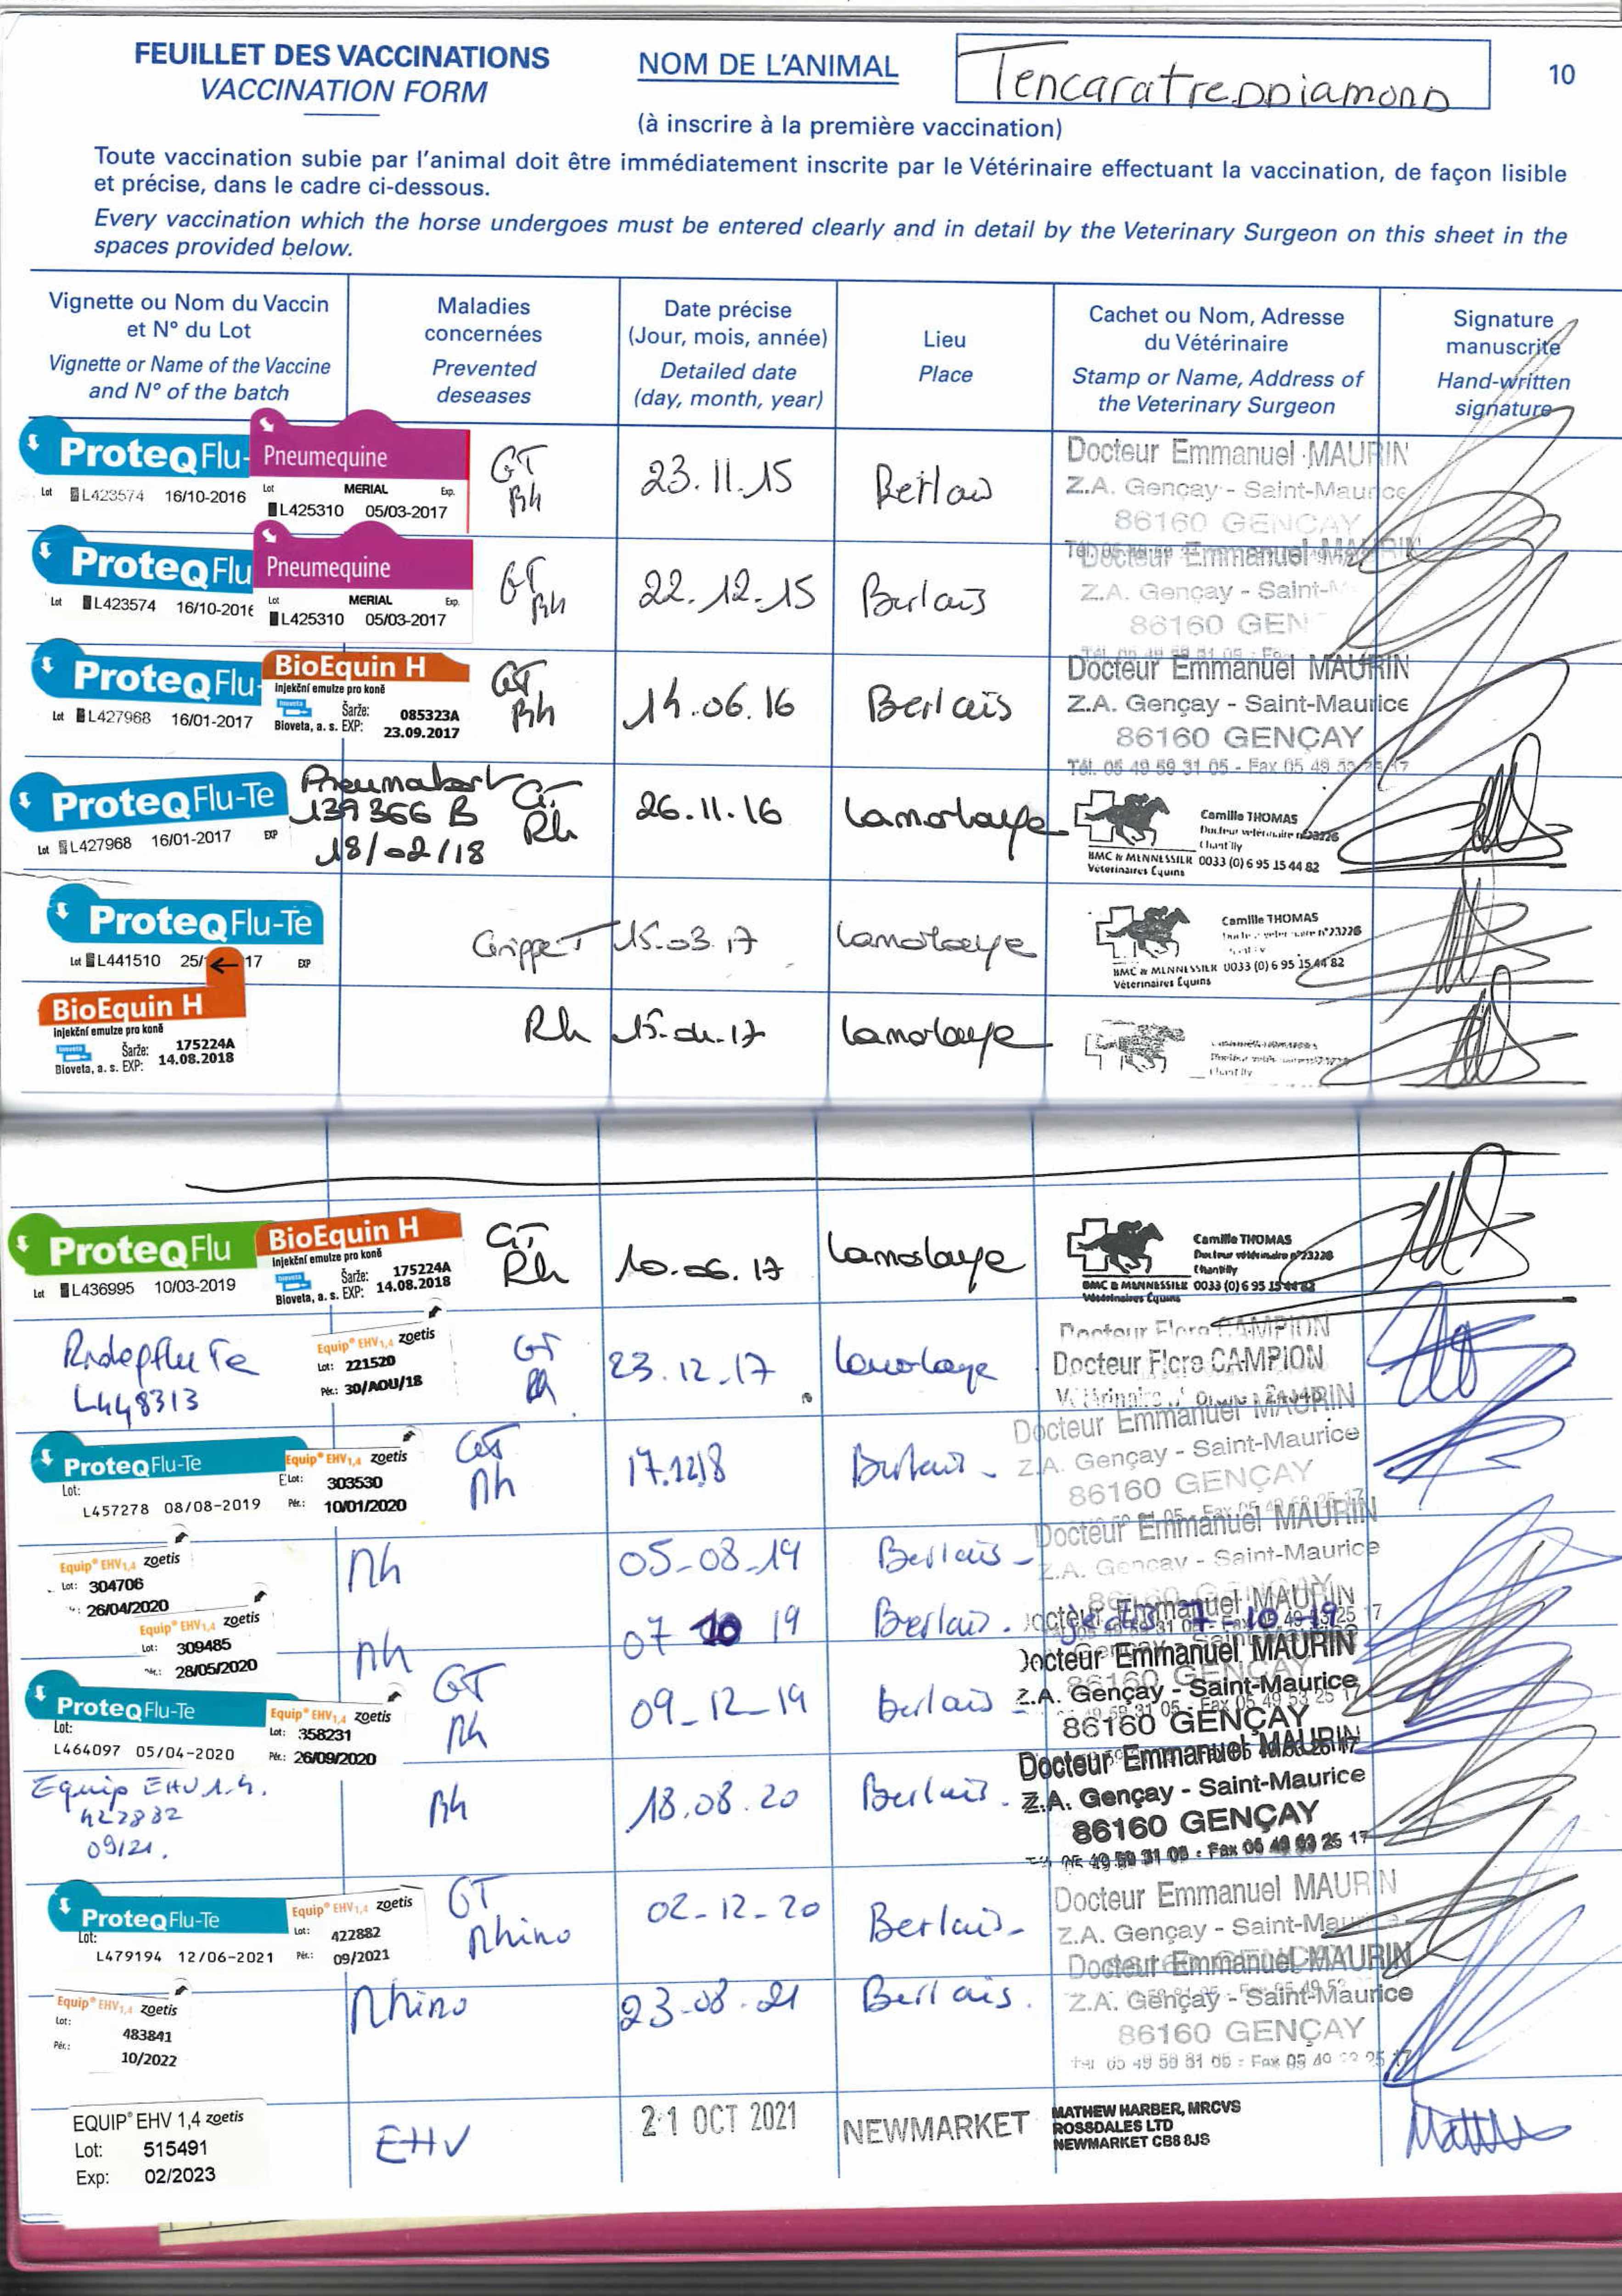 FEUILLET DES VACCINATIONS
VACCINATION FORM
NOM DE L'ANIMAL
TencaratreDDiamonD
10
(à inscrire à la première vaccination)
Toute vaccination subie par l'animal doit être immédiatement inscrite par le Vétérinaire effectuant la vaccination, de façon lisible
et précise, dans le cadre ci-dessous.
Every vaccination which the horse undergoes must be entered clearly and in detail by the Veterinary Surgeon on this sheet in the
spaces provided below.
Vignette ou Nom du Vaccin
et N° du Lot
Vignette or Name of the Vaccine
and N° of the batch
Maladies
concernées
Prevented
deseases
Date précise
(Jour, mois, année)
Detailed date
(day, month, year)
Lieu
Place
Cachet ou Nom, Adresse
du Vétérinaire
Stamp or Name, Address of
the Veterinary Surgeon
Signature
manuscrite
Hand-written
signature
ProteqFlu-
Lot L423574 16/10-2016
Pneumequine
Lot MERIAL Exp.
L425310 05/03-2017
GT
Rh
23.11.15
Berlais
Docteur Emmanuel MAURIN
Z.A. Gençay - Saint-Maurice
86160 GENCAY
ProteqFlu
Lot L423574 16/10-2016
Pneumequine
Lot MERIAL Exp.
L425310 05/03-2017
GT
Rh
22.12.15
Berlais
Docteur Emmanuel MAURIN
Z.A. Gençay - Saint-M
86160 GEN
ProteqFlu-
Lot L427968 16/01-2017
BioEquin H
injekční emulze pro koně
bioveta Šarže: 085323A
Bioveta, a. s. EXP: 23.09.2017
GT
Rh
14.06.16
Berlais
Docteur Emmanuel MAURIN
Z.A. Gençay - Saint-Maurice
86160 GENÇAY
Tél. 05 49 59 31 05 - Fax 05 49 53 25 17
ProteqFlu-Te
Lot L427968 16/01-2017 EXP
Pneumabort
139366 B
18/02/18
GT
Rh
26.11.16
Lamorlaye
Camille THOMAS
Docteur vétérinaire n°23226
Chantilly
BMC & MENNESSIER 0033 (0) 6 95 15 44 82
Vétérinaires Équins
ProteqFlu-Te
Lot L441510 25/ 17 EXP
Grippe T
15.03.17
Lamorlaye
Camille THOMAS
Docteur vétérinaire n°23226
BMC & MENNESSIER 0033 (0) 6 95 15 44 82
Vétérinaires Équins
BioEquin H
injekční emulze pro koně
bioveta Šarže: 175224A
Bioveta, a. s. EXP: 14.08.2018
Rh
15.04.17
Lamorlaye
Chantilly
ProteqFlu
Lot L436995 10/03-2019
BioEquin H
injekční emulze pro koně
bioveta Šarže: 175224A
Bioveta, a. s. EXP: 14.08.2018
GT
Rh
10.06.17
Lamorlaye
Camille THOMAS
Docteur vétérinaire n°23226
Chantilly
BMC & MENNESSIER 0033 (0) 6 95 15 44 82
Vétérinaires Équins
Proteqflu Te
L448313
Equip® EHV1,4 zoetis
Lot: 221520
Pér.: 30/AOU/18
GT
Rh
23.12.17
Lamorlaye
Docteur Flore CAMPION
Docteur Flore CAMPION
ProteqFlu-Te
Lot:
L457278 08/08-2019
Equip® EHV1,4 zoetis
Lot: 303530
Pér.: 10/01/2020
GT
Rh
17.12.18
Berlais
Docteur Emmanuel MAURIN
Z.A. Gençay - Saint-Maurice
86160 GENÇAY
Equip® EHV1,4 zoetis
Lot: 304706
26/04/2020
Rh
05-08-19
Berlais
Docteur Emmanuel MAURIN
Z.A. Gençay - Saint-Maurice
Equip® EHV1,4 zoetis
Lot: 309485
28/05/2020
Rh
07 10 19
Berlais.
Docteur Emmanuel MAURIN
7-10-19
ProteqFlu-Te
Lot:
L464097 05/04-2020
Equip® EHV1,4 zoetis
Lot: 358231
Pér.: 26/09/2020
GT
Rh
09-12-19
Berlais
Docteur Emmanuel MAURIN
Z.A. Gençay - Saint-Maurice
86160 GENÇAY
Equip EHV 1.4.
422882
09/21.
Rh
18.08.20
Berlais.
Docteur Emmanuel MAURIN
Z.A. Gençay - Saint-Maurice
86160 GENÇAY
05 49 59 31 05 - Fax 05 49 53 25 17
ProteqFlu-Te
Lot:
L479194 12/06-2021
Equip® EHV1,4 zoetis
Lot: 422882
Pér.: 09/2021
GT
Rhino
02-12-20
Berlais-
Docteur Emmanuel MAURIN
Z.A. Gençay - Saint-Mau
Equip® EHV1,4 zoetis
Lot: 483841
Pér.: 10/2022
Rhino
23-08.21
Berlais.
Docteur Emmanuel MAURIN
Z.A. Gençay - Saint-Maurice
86160 GENÇAY
Tél 05 49 59 31 05 - Fax 05 49 53 25 17
EQUIP® EHV 1,4 zoetis
Lot: 515491
Exp: 02/2023
EHV
21 OCT 2021
NEWMARKET
MATHEW HARBER, MRCVS
ROSSDALES LTD
NEWMARKET CB8 8JS